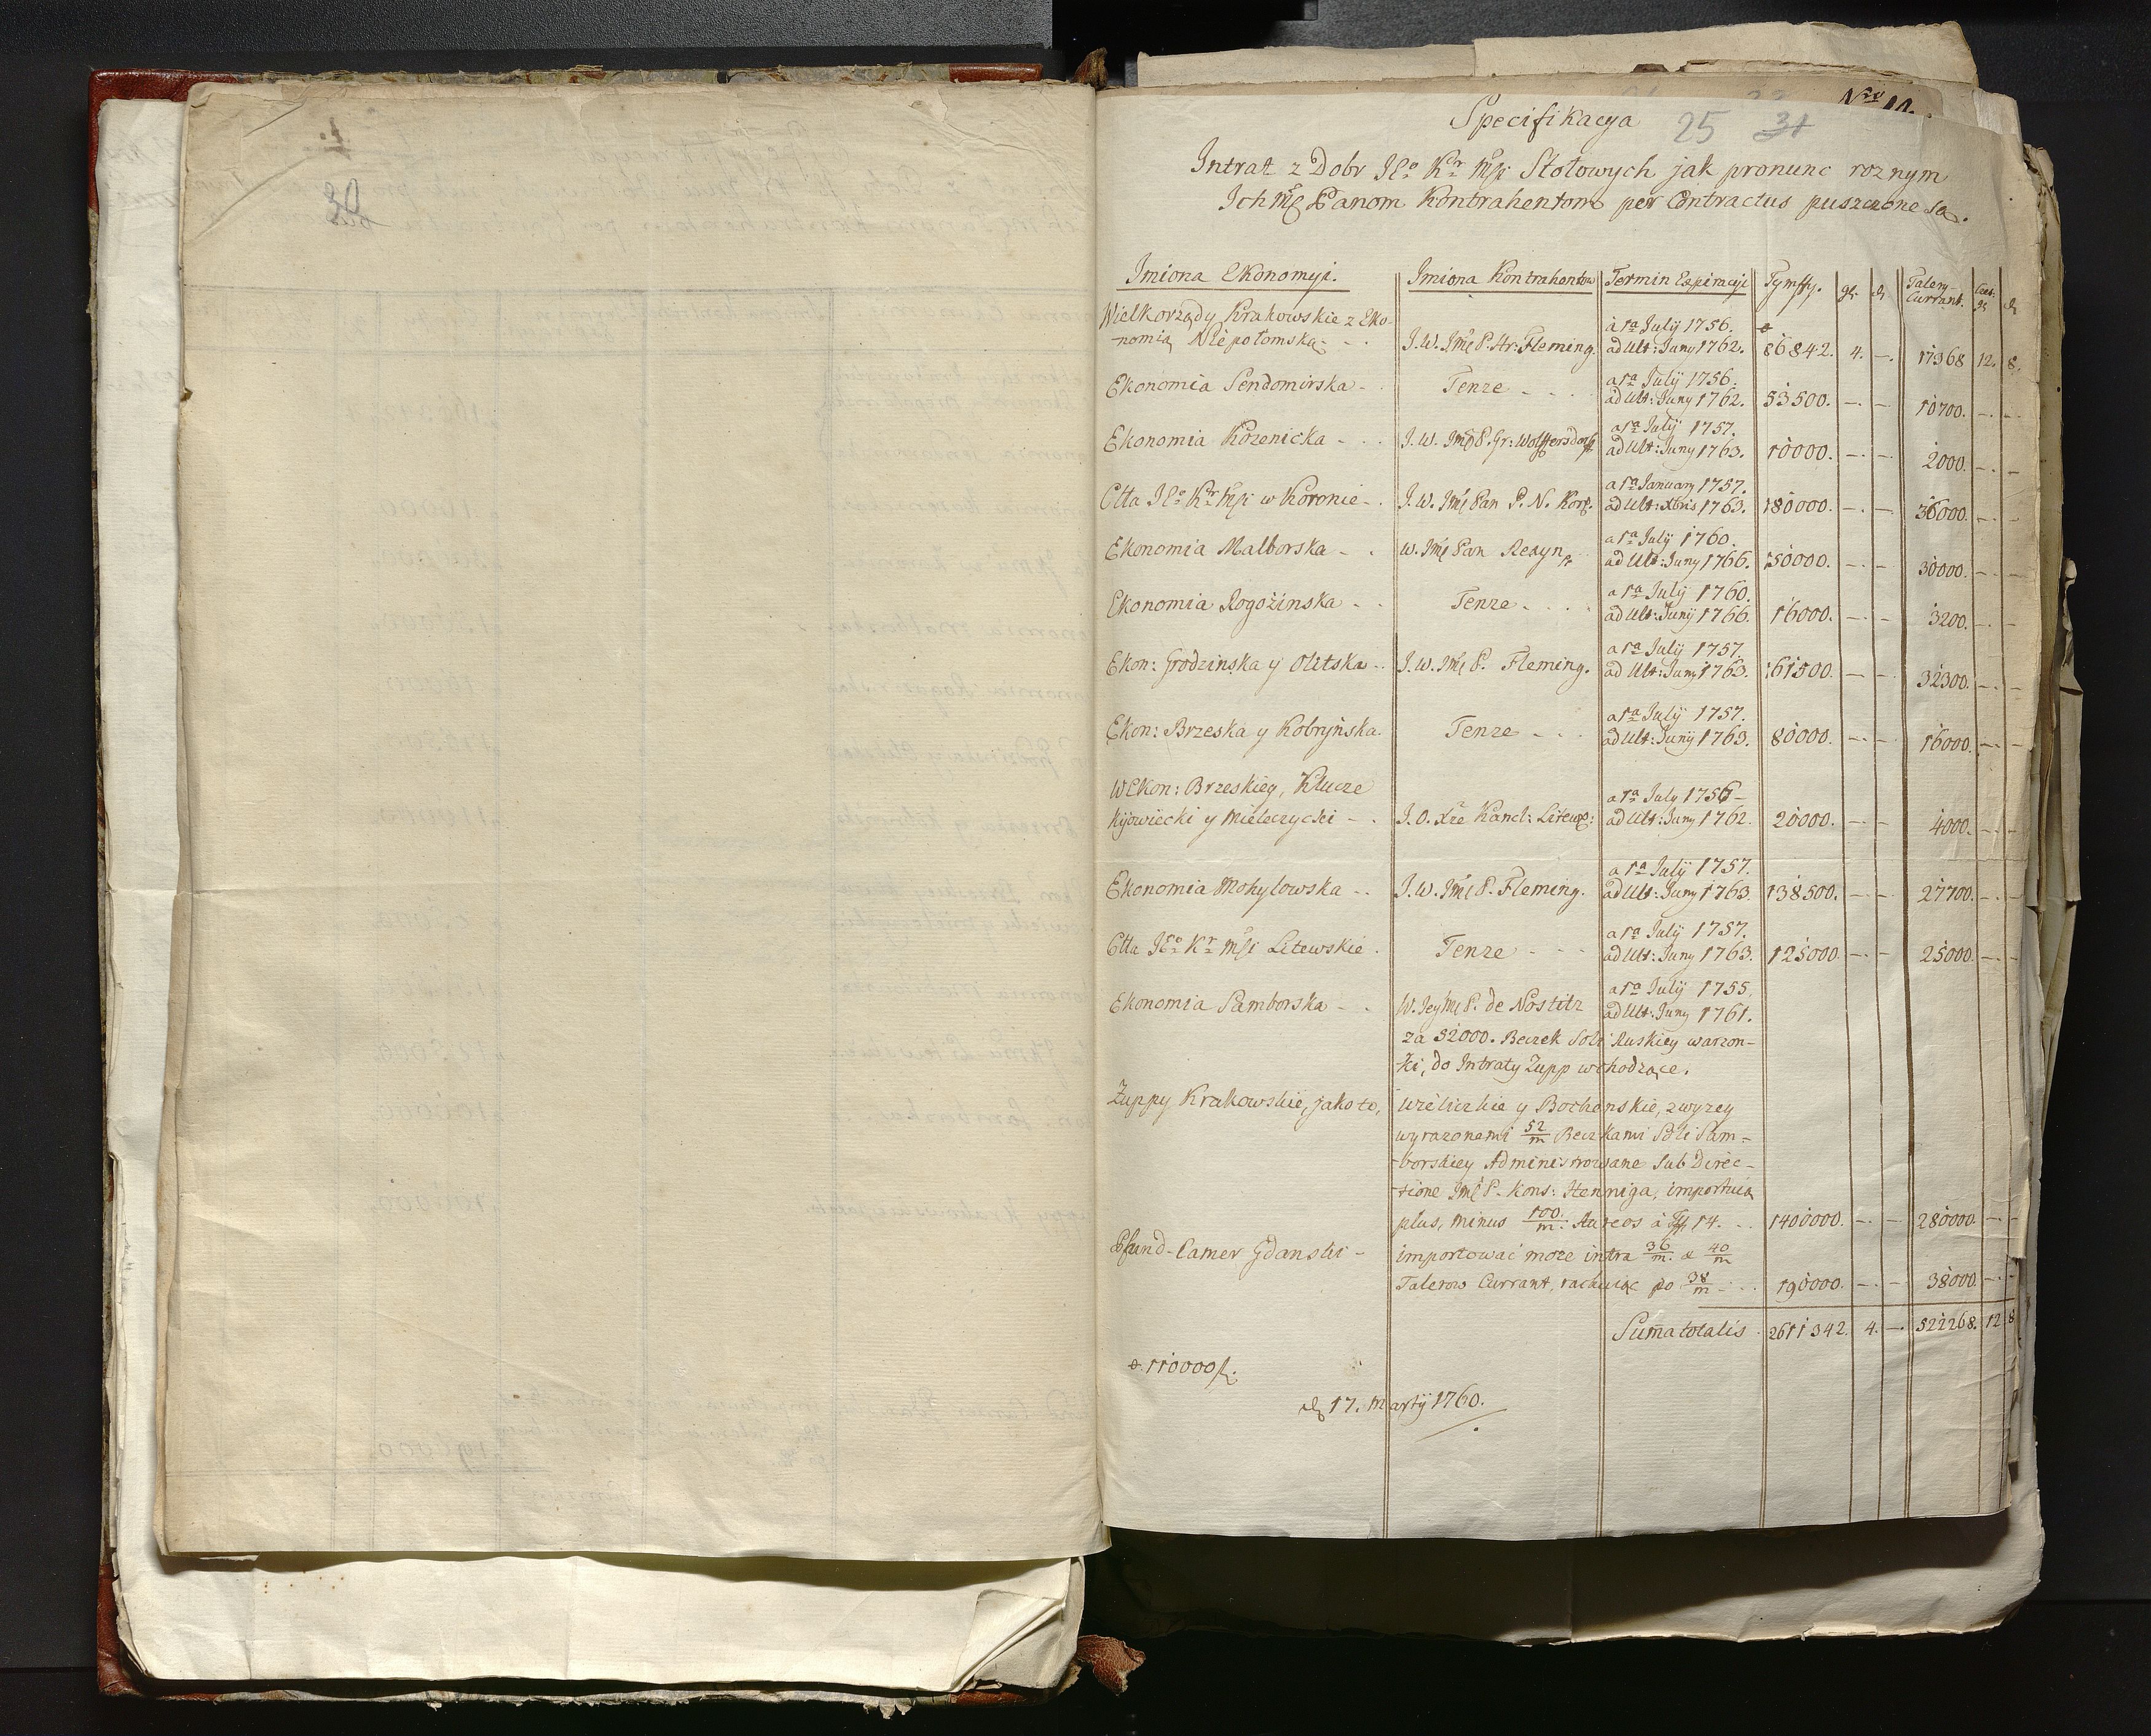 30
Nro 14.
Specifikacya 25 31
Intrat z Dobr JKo Kr Mci Stołowych jak pronunc roznym
Ich Mć Panom Kontrahentom per Contractus puszczone są.
Imiona Ekonomyi. Imiona Kontrahentow Termin Expiracyi Tymffy. gl. d Talery Currant. gl d
Wielkorządy Krakowskie z Eko-
nomią Niepołomską - . J. W. Imć P. Hr: Fleming. à 1ma July 1756. ad Ult: Juny 1762. 86842. 4. —. 17368 12. 8.
Ekonomia Sendomirska - . Tenze - . . . a 1ma July 1756. ad Ult: Juny 1762. 53500. —. — 10700. —. —
Ekonomia Kozenicka - . . J. W. Imć P. Gr: Wolffersdorff. a 1ma July 1757. ad Ult: Juny 1763. 10000. —. — 2000. —. —
Cła JKo Kr Mci w Koronie - . J. W. Imć Pan P. N. Kor. a 1ma January 1757. ad Ult: Xbris 1763. 180000. —. — 36000. —. —
Ekonomia Malborska - . W. Imć Pan Rexyn a 1ma July 1760. ad Ult: Juny 1766. 150000. —. — 30000. —. —
Ekonomia Rogożinska - . Tenze - . . . a 1ma July 1760. ad Ult: Juny 1766. 16000. —. — 3200. —. —
Ekon: Grodzinska y Olitska - . J. W. Imć P. Fleming. a 1ma July 1757. ad Ult: Juny 1763. 161500. —. — 32300. —. —
Ekon: Brzeska y Kobryńska. Tenze - . . a 1ma July 1757. ad Ult: Juny 1763. 80000. —. — 16000. —. —
W Ekon: Brzeskiey, Klucze
Kijowiecki y Mieleczycki - . J. O. Xże Kancl: Litews: a 1ma July 1756 - ad Ult: Juny 1762. 20000. —. — 4000. —. —
Ekonomia Mohylowska - . J. W. Imć P. Fleming. a 1ma July 1757. ad Ult: Juny 1763. 138500. —. — 27700. —. —
Cła JKo Kr Mci Litewskie. Tenze - - - a 1ma July 1757. ad Ult: Juny 1763. 125000. —. — 25000. —. —
Ekonomia Samborska - . W. Jey Mć P. de Nostitz a 1ma July 1755. ad Ult: Juny 1761.
za 52000. Beczek Soli Ruskiey warzon-
ki, do Intraty Zupp wchodzące.
Żuppy Krakowskie, jako to, Wieliczkie y Bochenskie, z wyzey
wyrazonemi 52/m Beczkami Soli Sam-
borskiey Administrowane sub Direc-
tione Imć P. Kons: Henniga, importuią
plus, minus 100/m. Aureos à Tf 14. . . 1400000. —. — 280000. —. —
Pfund-Camer Gdanski - importować może intra 36/m. & 40/m
Talerow Currant, rachuiąc po 38/m - . . 190000. —. — 38000. —. —
Suma totalis. 2611342. 4. —. 522268. 12 8
110000 f.
d 17. Martij 1760.